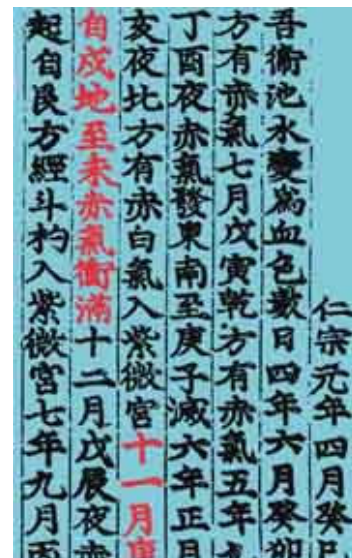 仁宗元年四月癸巳
吾衛池水變爲血色數日四年六月癸卯
方有赤氣七月戊寅乾方有赤氣五年
丁酉夜赤氣發東南至庚子滅六年正月
亥夜北方有赤白氣入紫微宮十一月庚
自戌地至未赤氣衝滿十二月戊辰夜赤
起自艮方經斗杓入紫微宮七年九月丙